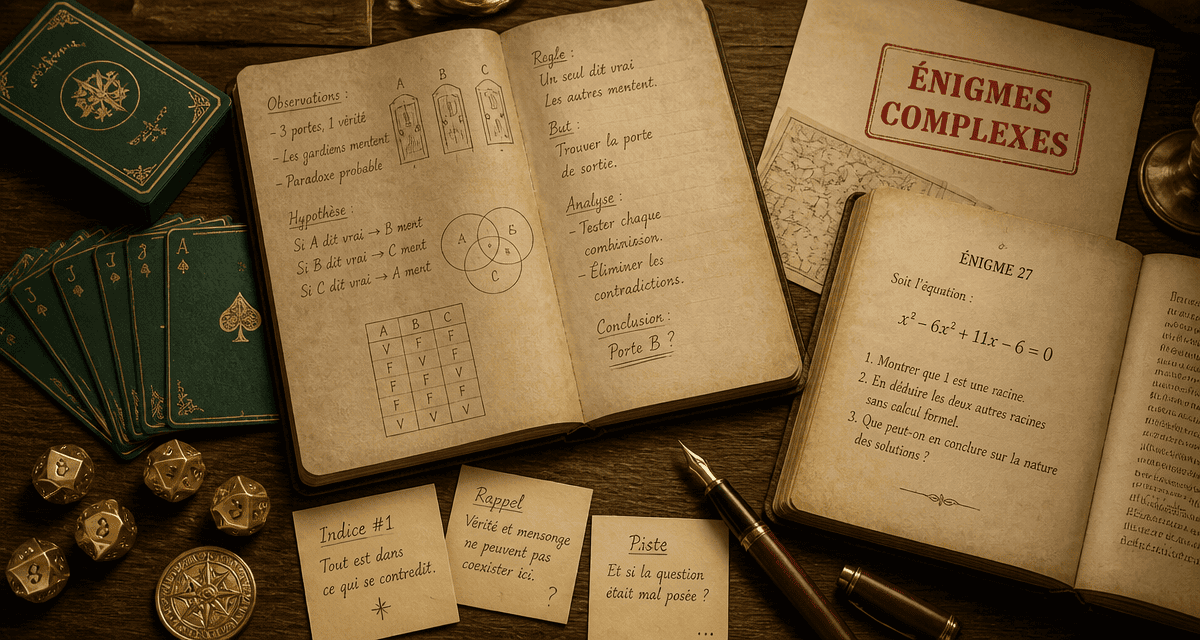 Observations :
- 3 portes, 1 vérité
- Les gardiens mentent
- Paradoxe probable
A B C
Hypothèse :
Si A dit vrai → B ment
Si B dit vrai → C ment
Si C dit vrai → A ment
A B
C
A B C
V F F
Regle :
Un seul dit vrai
Les autres mentent.
But :
Trouver la porte
de sortie.
Analyse :
- Tester chaque
combinison.
- Éliminer les
contradictions.
Conclusion :
Porte B ?
ÉNIGMES
COMPLEXES
ÉNIGME 27
Soit l'équntion :
x² – 6x² + 11x – 6 = 0
1. Montrer que 1 est une racine.
2. En déduire les deux autres racines
sans calcul formel.
3. Que peut-on en conclure sur la nature
des solutions ?
A
Indice #1
Tout est dans
ce qui se contredit.
Rappel
Vérité et mensonge
ne peuvent pas
coexister ici.
?
Piste
Et si la question
était mal posée ?
...